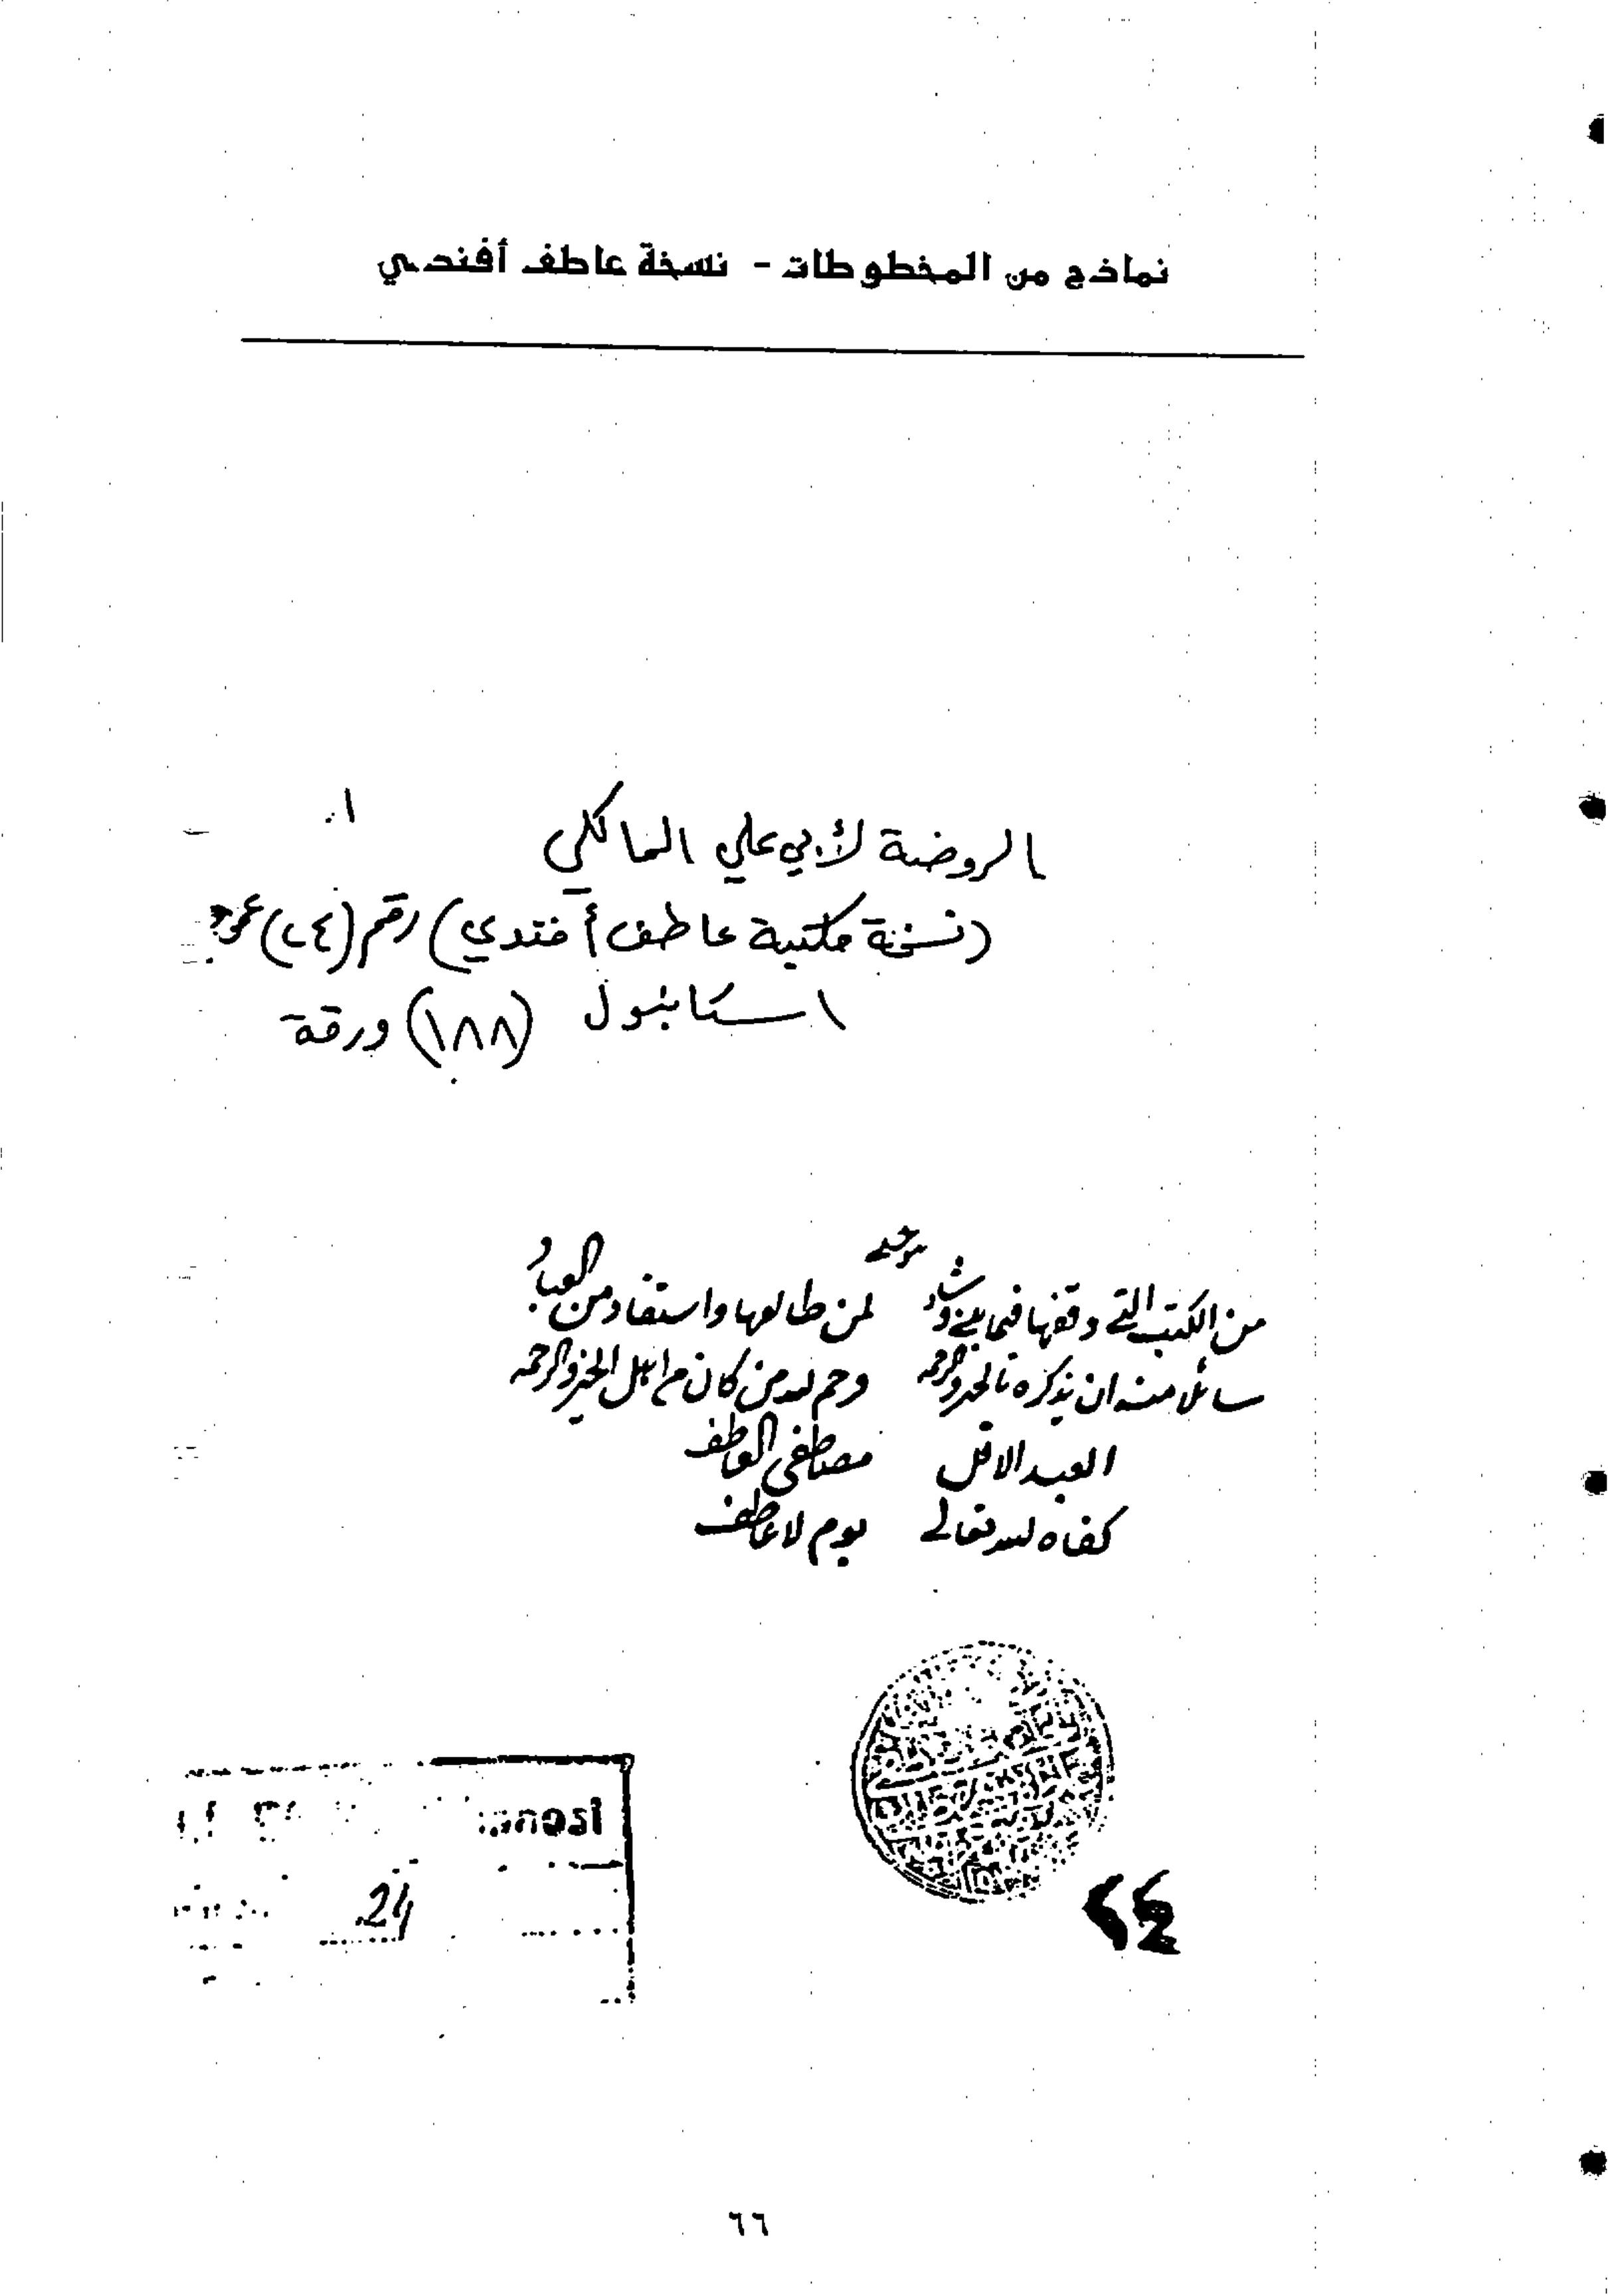 نماذج من المخطوطات - نسخة عاطف أفندي
الروضة لأبي علي المالكي
(نسخة مكتبة عاطف أفندي) رقم (٢٤)
استانبول (١٨٨) ورقة
من الكتب التي وقفها فيما لمن طالعها واستفاد من العباد
سائلا منه ان يذكره بالخير والرحمه رحم الله من كان من اهل الخير والرحمه
العبد الاقل مصطفى العاطف
كفاه الله تعالى يوم لا عاطف
٢٤
24
٦٦